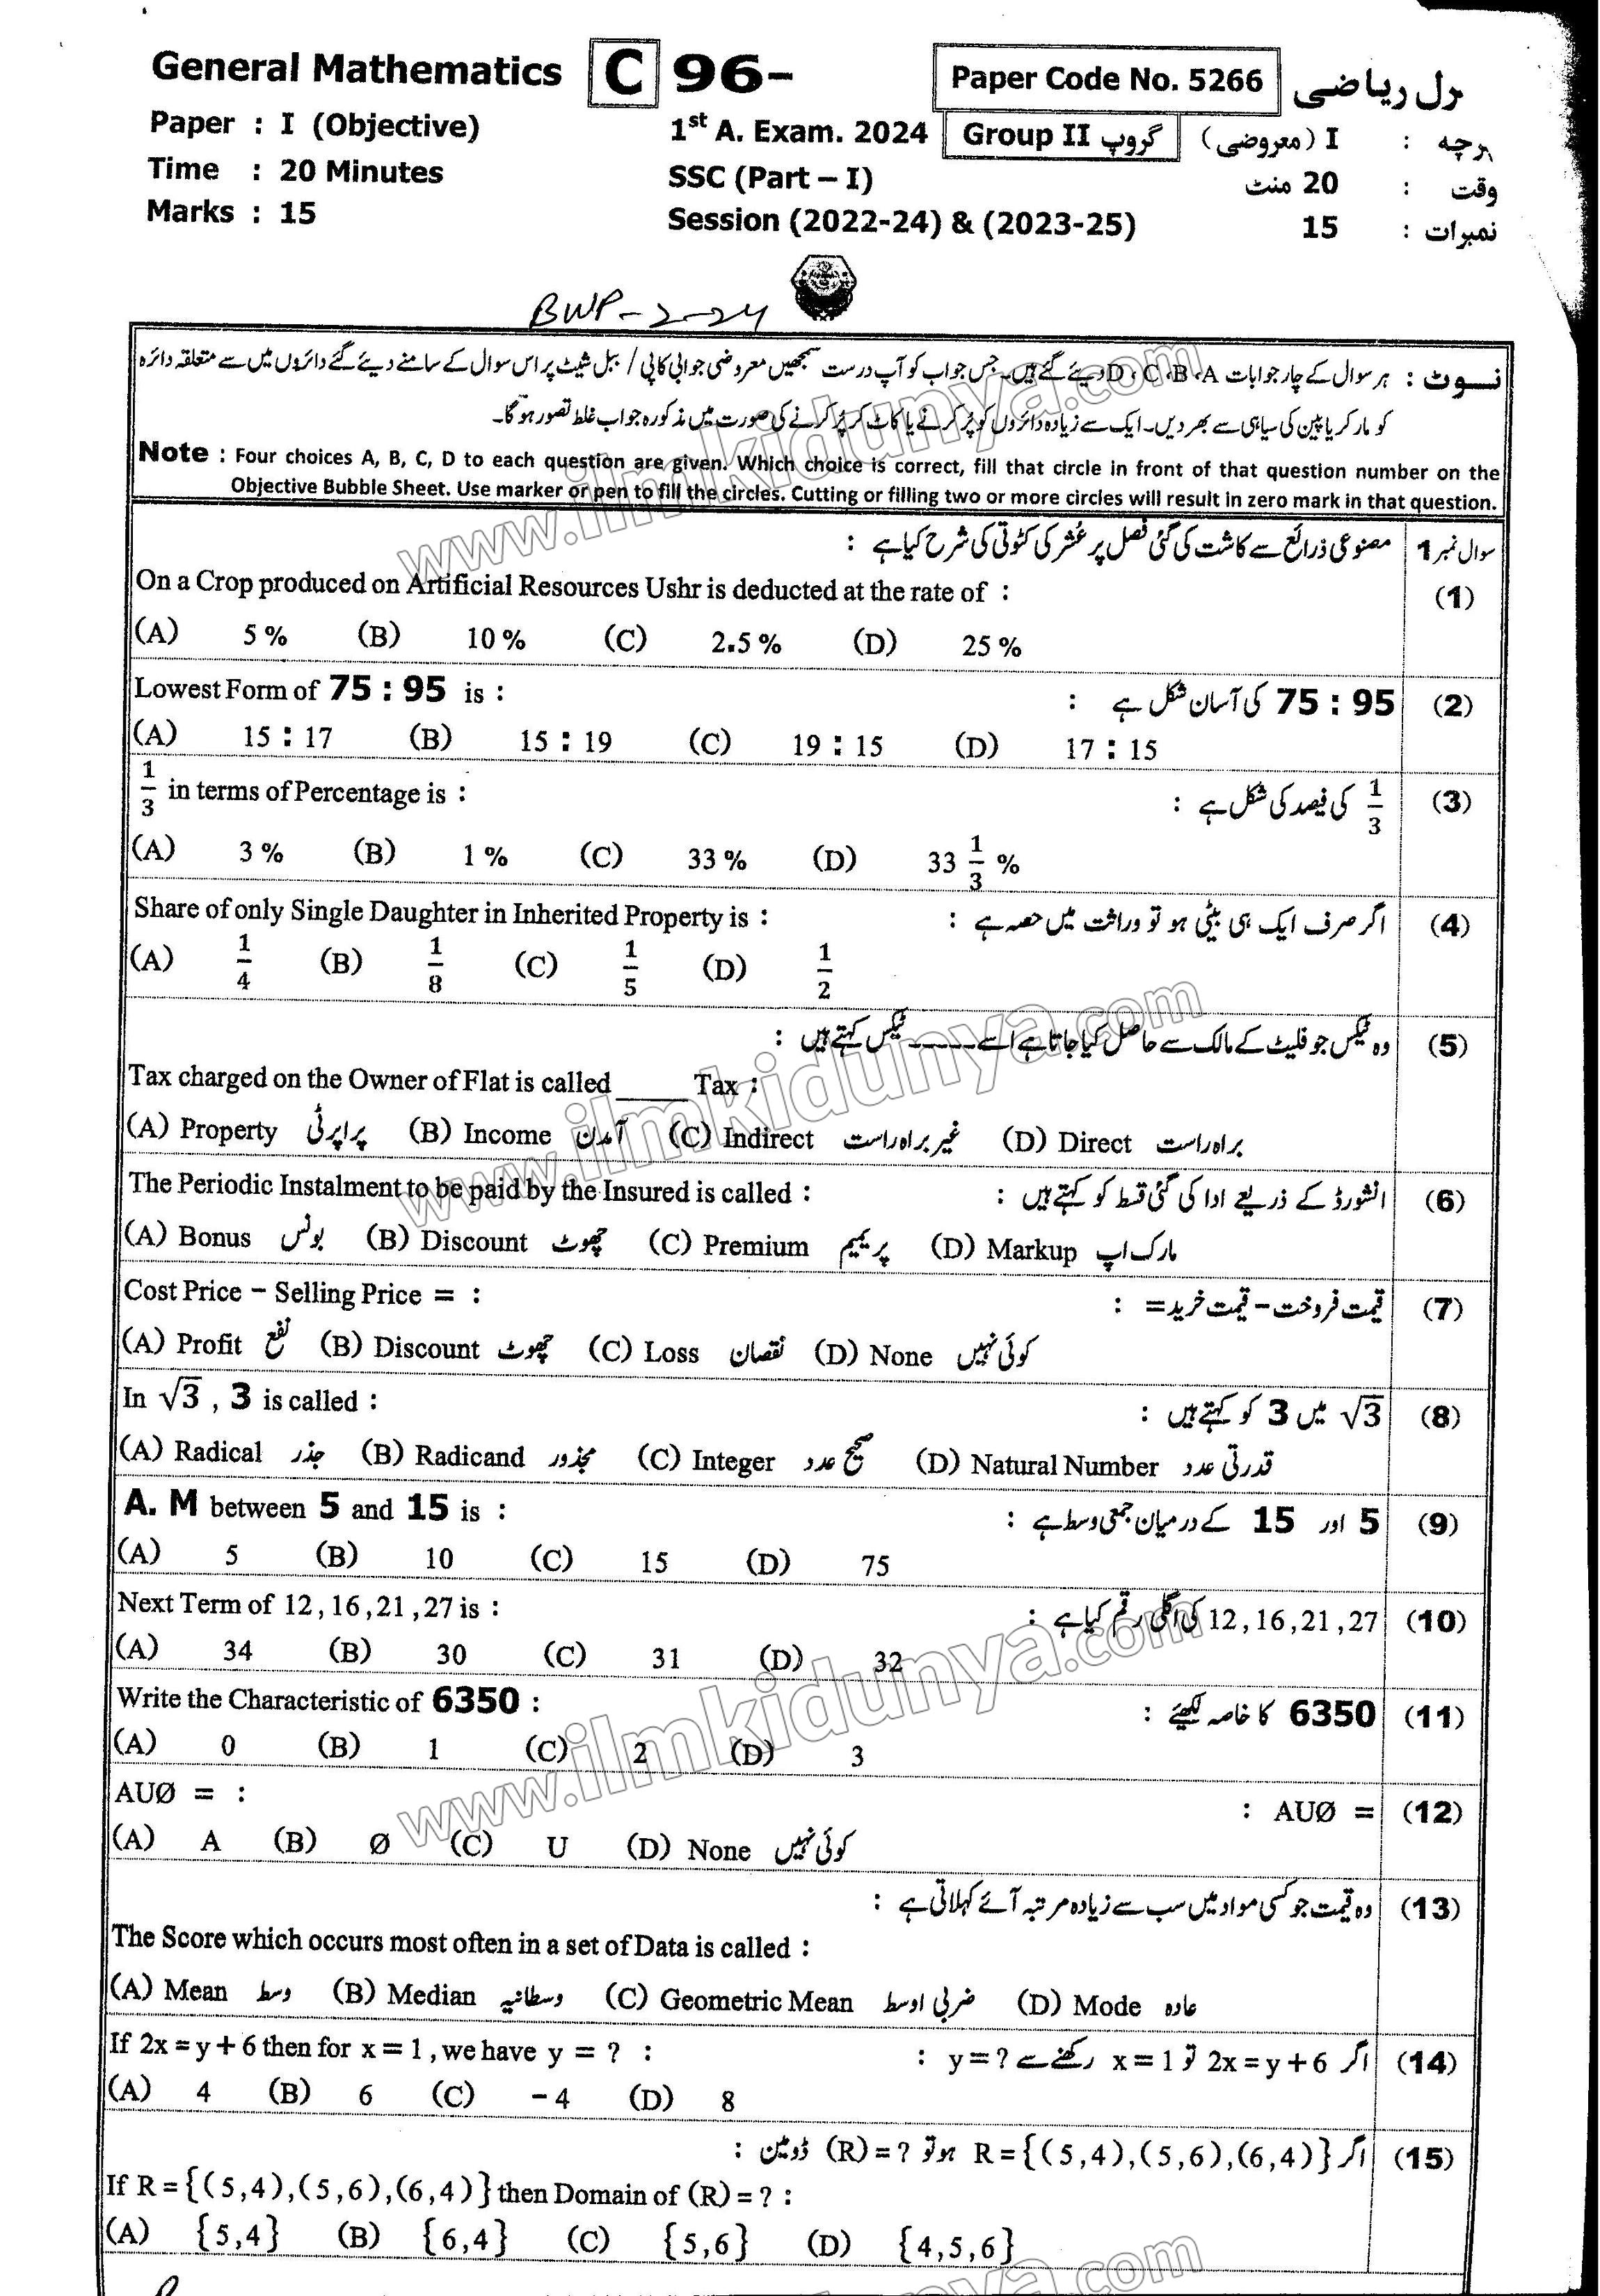 General Mathematics C 96- Paper Code No. 5266 رل ریاضی
Paper : I (Objective) 1st A. Exam. 2024 Group II گروپ I (معروضی) : پرچہ
Time : 20 Minutes SSC (Part – I) 20 منٹ : وقت
Marks : 15 Session (2022-24) & (2023-25) 15 : نمبرات
BWP-2-24
نوٹ : ہر سوال کے چار جوابات D ، C ،B ،A دیئے گئے ہیں۔ جس جواب کو آپ درست سمجھیں معروضی جوابی کاپی / ببل شیٹ پر اس سوال کے سامنے دیئے گئے دائروں میں سے متعلقہ دائرہ
کو مارکر یا پین کی سیاہی سے بھر دیں۔ ایک سے زیادہ دائروں کو پُر کرنے یا کاٹ کر پُر کرنے کی صورت میں مذکورہ جواب غلط تصور ہوگا۔
Note : Four choices A, B, C, D to each question are given. Which choice is correct, fill that circle in front of that question number on the
Objective Bubble Sheet. Use marker or pen to fill the circles. Cutting or filling two or more circles will result in zero mark in that question.
سوال نمبر 1 مصنوعی ذرائع سے کاشت کی گئی فصل پر عُشر کی کٹوتی کی شرح کیا ہے :
On a Crop produced on Artificial Resources Ushr is deducted at the rate of : (1)
(A) 5 % (B) 10 % (C) 2.5 % (D) 25 %
Lowest Form of 75 : 95 is : 75 : 95 کی آسان شکل ہے : (2)
(A) 15 : 17 (B) 15 : 19 (C) 19 : 15 (D) 17 : 15
1/3 in terms of Percentage is : 1/3 کی فیصد کی شکل ہے : (3)
(A) 3 % (B) 1 % (C) 33 % (D) 33 1/3 %
Share of only Single Daughter in Inherited Property is : اگر صرف ایک ہی بیٹی ہو تو وراثت میں حصہ ہے : (4)
(A) 1/4 (B) 1/8 (C) 1/5 (D) 1/2
وہ ٹیکس جو فلیٹ کے مالک سے حاصل کیا جاتا ہے اسے ----- ٹیکس کہتے ہیں : (5)
Tax charged on the Owner of Flat is called _____ Tax :
(A) Property پراپرٹی (B) Income آمدن (C) Indirect غیر براہ راست (D) Direct براہ راست
The Periodic Instalment to be paid by the Insured is called : انشورڈ کے ذریعے ادا کی گئی قسط کو کہتے ہیں : (6)
(A) Bonus بونس (B) Discount چھوٹ (C) Premium پریمیم (D) Markup مارک اپ
Cost Price – Selling Price = : قیمت فروخت – قیمت خرید = : (7)
(A) Profit نفع (B) Discount چھوٹ (C) Loss نقصان (D) None کوئی نہیں
In √3 , 3 is called : √3 میں 3 کو کہتے ہیں : (8)
(A) Radical جذر (B) Radicand مجذور (C) Integer صحیح عدد (D) Natural Number قدرتی عدد
A. M between 5 and 15 is : 5 اور 15 کے درمیان جمعی وسط ہے : (9)
(A) 5 (B) 10 (C) 15 (D) 75
Next Term of 12 , 16 , 21 , 27 is : 12 , 16 , 21 , 27 کی اگلی رقم کیا ہے : (10)
(A) 34 (B) 30 (C) 31 (D) 32
Write the Characteristic of 6350 : 6350 کا خاصہ لکھیئے : (11)
(A) 0 (B) 1 (C) 2 (D) 3
AUØ = : : AUØ = (12)
(A) A (B) Ø (C) U (D) None کوئی نہیں
وہ قیمت جو کسی مواد میں سب سے زیادہ مرتبہ آئے کہلاتی ہے : (13)
The Score which occurs most often in a set of Data is called :
(A) Mean وسط (B) Median وسطانیہ (C) Geometric Mean ضربی اوسط (D) Mode عادہ
If 2x = y + 6 then for x = 1 , we have y = ? : اگر 2x = y + 6 تو x = 1 رکھنے سے y = ? : (14)
(A) 4 (B) 6 (C) – 4 (D) 8
اگر R = {(5,4),(5,6),(6,4)} ہو تو (R) = ? ڈومین : (15)
If R = {(5,4),(5,6),(6,4)} then Domain of (R) = ? :
(A) {5,4} (B) {6,4} (C) {5,6} (D) {4,5,6}
www.ilmkidunya.com
www.ilmkidunya.com
www.ilmkidunya.com